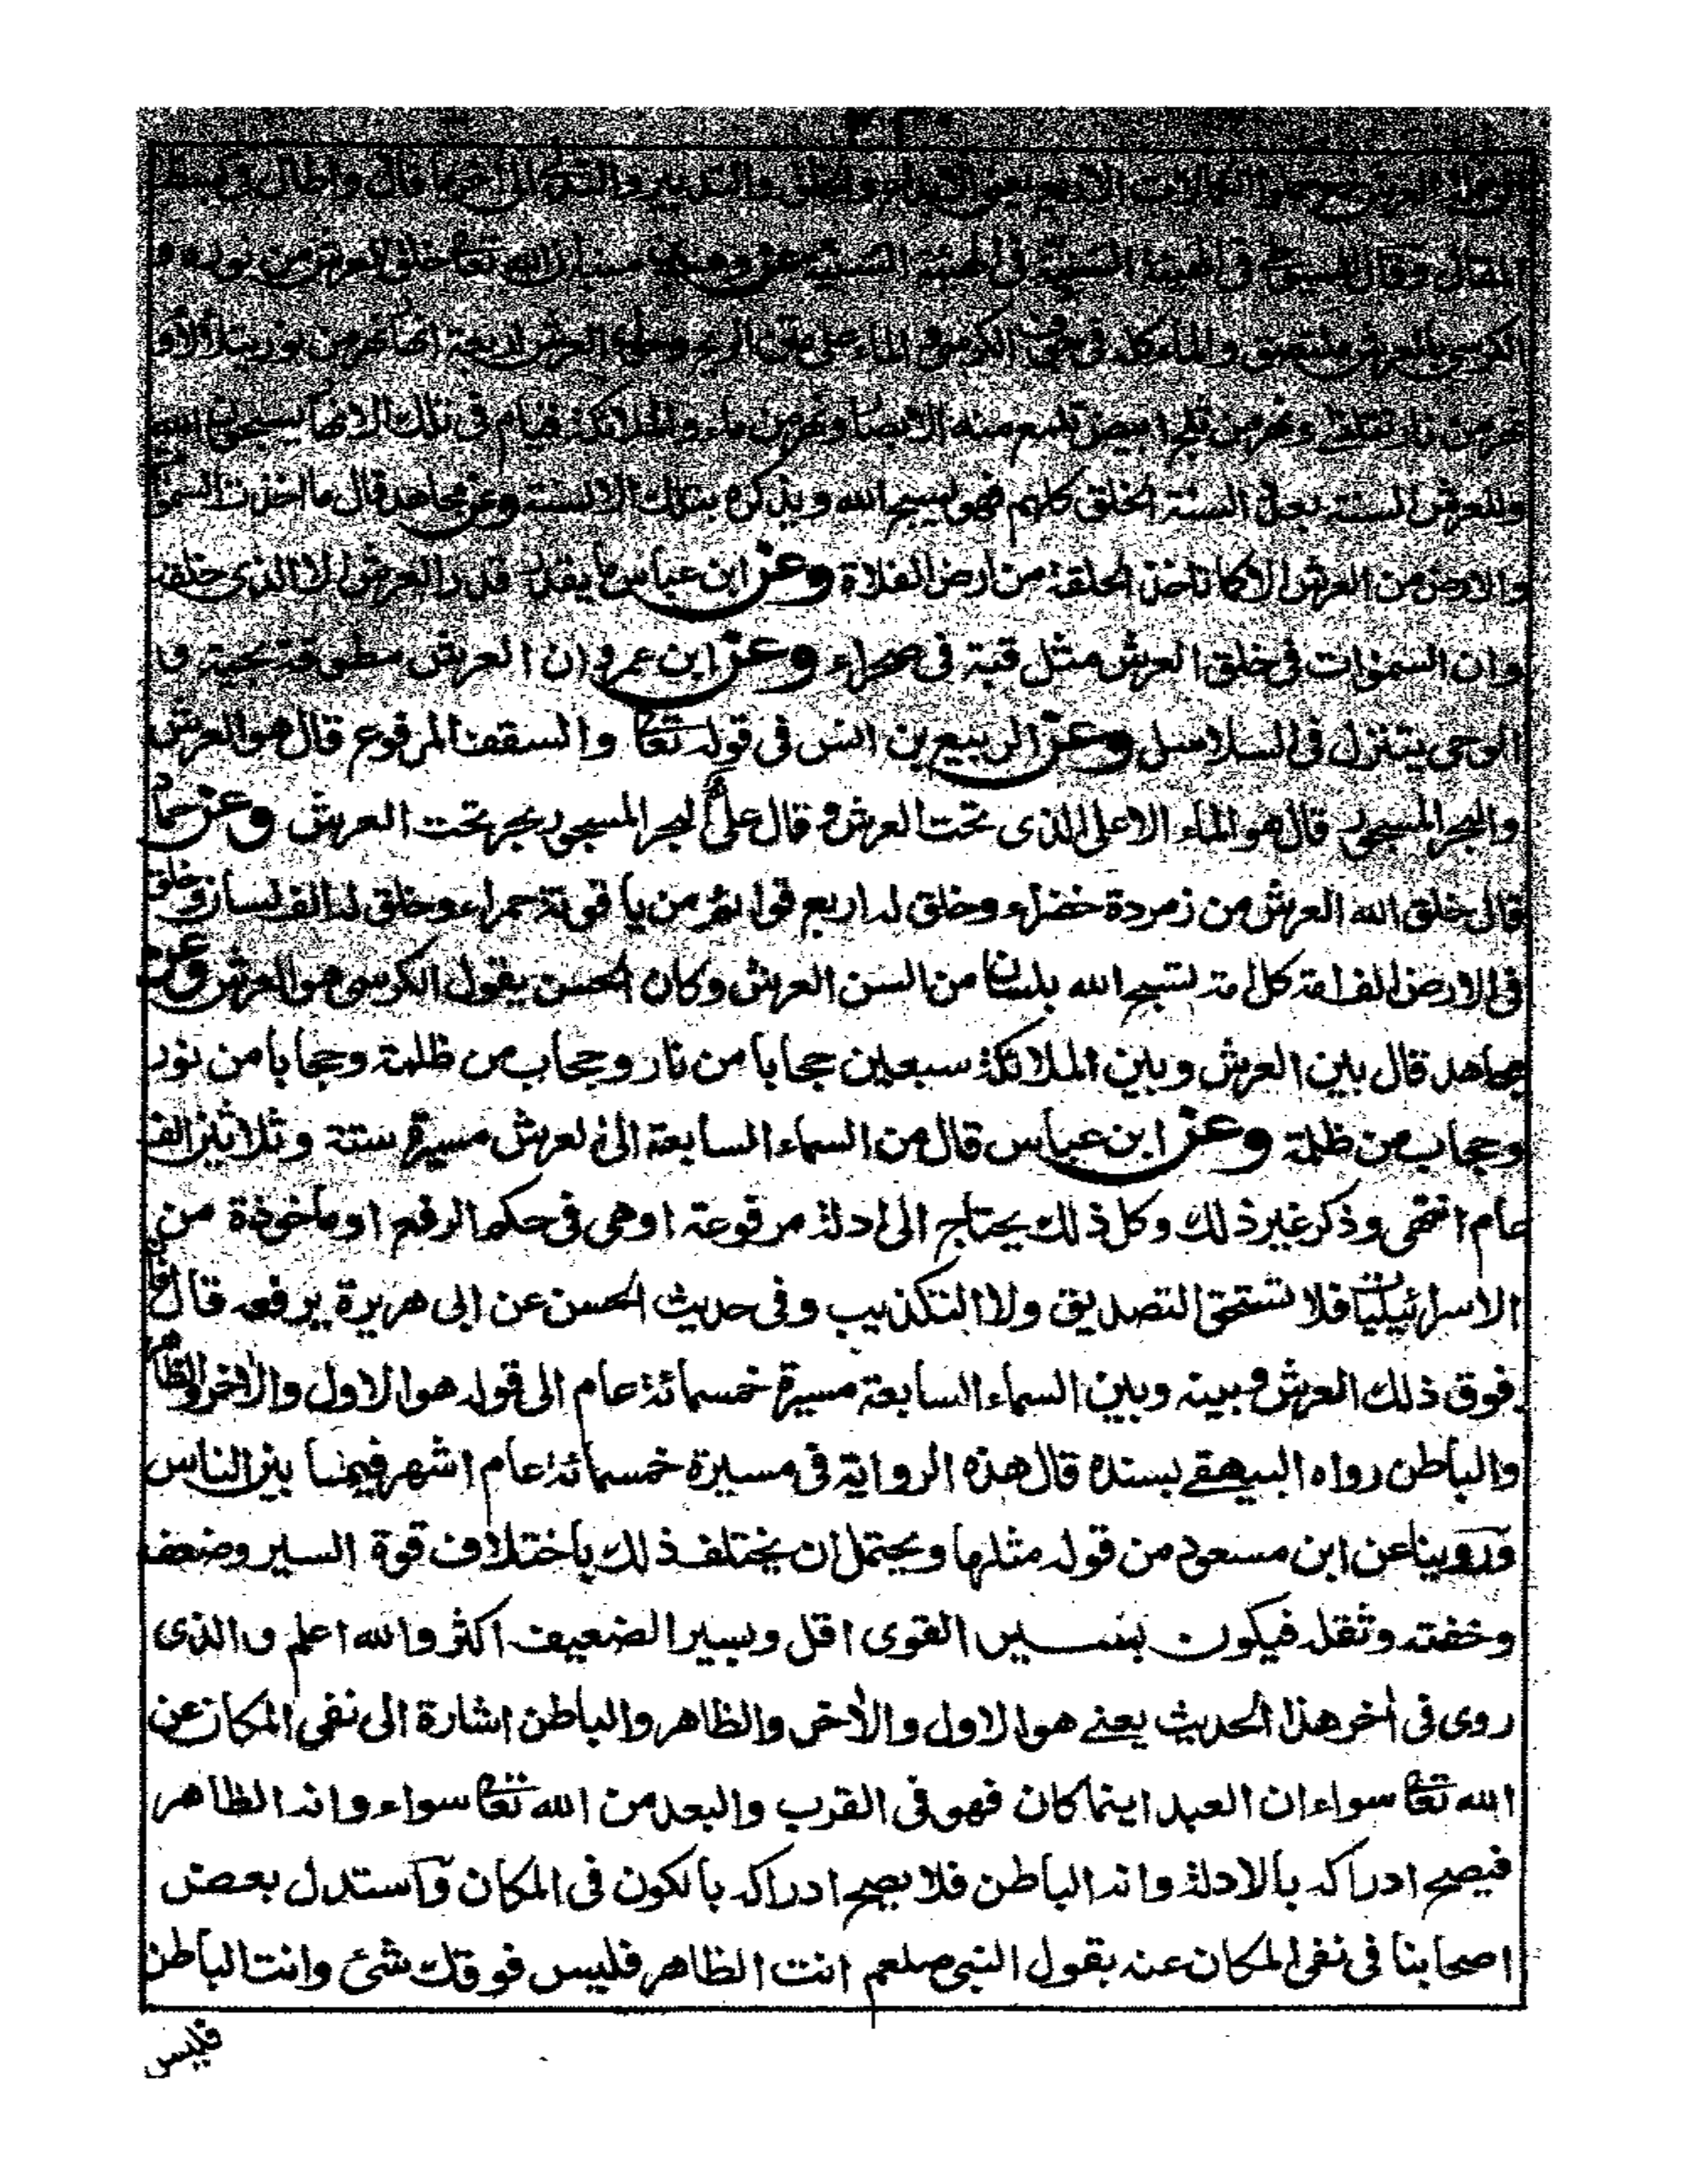 المقال وقال السيوطي في الهيئة السنية في الهيئة السنية عن وهب بن منبه ان الله تعا خلق العرش من نوره و
الكرسي بالعرش ملتصق والماء كله في جوف الكرسي و الماء على متن الريح وحول العرش اربعة انهار نهر من نور يتلألأ و
نهر من نار تتلظى ونهر من ثلج ابيض تلتمع منه الابصار ونهر من ماء والملائكة قيام في تلك الانهار يسبحون الله
وللعرش السنة بعدد السنة الخلق كلهم فهو يسبح الله ويذكره بتلك الالسنة وعن مجاهد قال ما اخذت السموات
والارض من العرش الا كما تاخذ الحلقة من ارض الفلاة وعن ابن عباس ما يقدر قدر العرش الا الذى خلقه
وان السموات في خلق العرش مثل قبة في صحراء وعن ابن عمرو ان العرش مطوقة بحية و
الوحى يتنزل في السلاسل وعن الربيع بن انس في قوله تعا والسقف المرفوع قال هو العرش
والبحر المسجور قال هو الماء الاعلى الذى تحت العرش و قال علي البحر المسجور بحر تحت العرش وعن حماد
قال خلق الله العرش من زمردة خضراء وخلق له اربع قوائم من ياقوتة حمراء وخلق له الف لسان وخلق
في الارض الف امة كل امة تسبح الله بلسان من السن العرش وكان الحسن يقول الكرسى هو العرش وعن
مجاهد قال بين العرش وبين الملائكة سبعين حجابا من نار وحجاب من ظلمة وحجابا من نور
وحجاب من ظلمة وعن ابن عباس قال من السماء السابعة الى العرش مسيرة ستة وثلاثين الف
عام انتهى وذكر غير ذلك وكل ذلك يحتاج الى ادلة مرفوعة او هى في حكم الرفع او مأخوذة من
الاسرائيليات فلا تستحق التصديق ولا التكذيب وفى حديث الحسن عن ابى هريرة يرفعه قال فان
فوق ذلك العرش وبينه وبين السماء السابعة مسيرة خمسمائة عام الى قوله هو الاول والآخر والظاهر
والباطن رواه البيهقے بسنده قال هذه الرواية فى مسيرة خمسمائة عام اشهر فيما بين الناس
وروينا عن ابن مسعود من قوله مثلها ويحتمل ان يختلف ذلك باختلاف قوة السير وضعفه
وخفته وثقله فيكون بسير القوى اقل وبسير الضعيف اكثر والله اعلم والذى
روى فى آخر هذا الحديث يعنے هو الاول والآخر والظاهر والباطن اشارة الى نفى المكان عن
الله تعا سواء ان العبد اينما كان فهو فى القرب والبعد من الله تعا سواء وانه الظاهر
فيصح ادراكه بالادلة وانه الباطن فلا يصح ادراكه بالكون فى المكان واستدل بعض
اصحابنا فى نفى المكان عنه بقول النبى صلعم انت الظاهر فليس فوقك شئ وانت الباطن
فليس